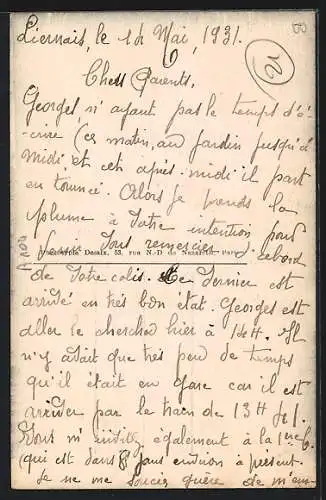 Liernais, le 14 Mai, 1931.
21
Chers Parents,
Georges, n'ayant pas le temps d'é-
crire (ce matin, au jardin jusqu'à
Midi, et cet après-midi il part
en tournée. Alors je prends la
plume à Votre intention pour
Vous remercier d'abord
Desaix, 53, rue N.-D de Nazareth, Paris
de Votre colis. Ce dernier est
arrivé en très bon état. Georges est
aller le chercher hier à 14H. Il
n'y avait que très peu de temps
qu'il était en gare car il est
arriver par le train de 13H
Vous m'invitez également à la 1ère C.
qui est dans 8 jours environ à présent.
Je ne me soucie guère de m'en